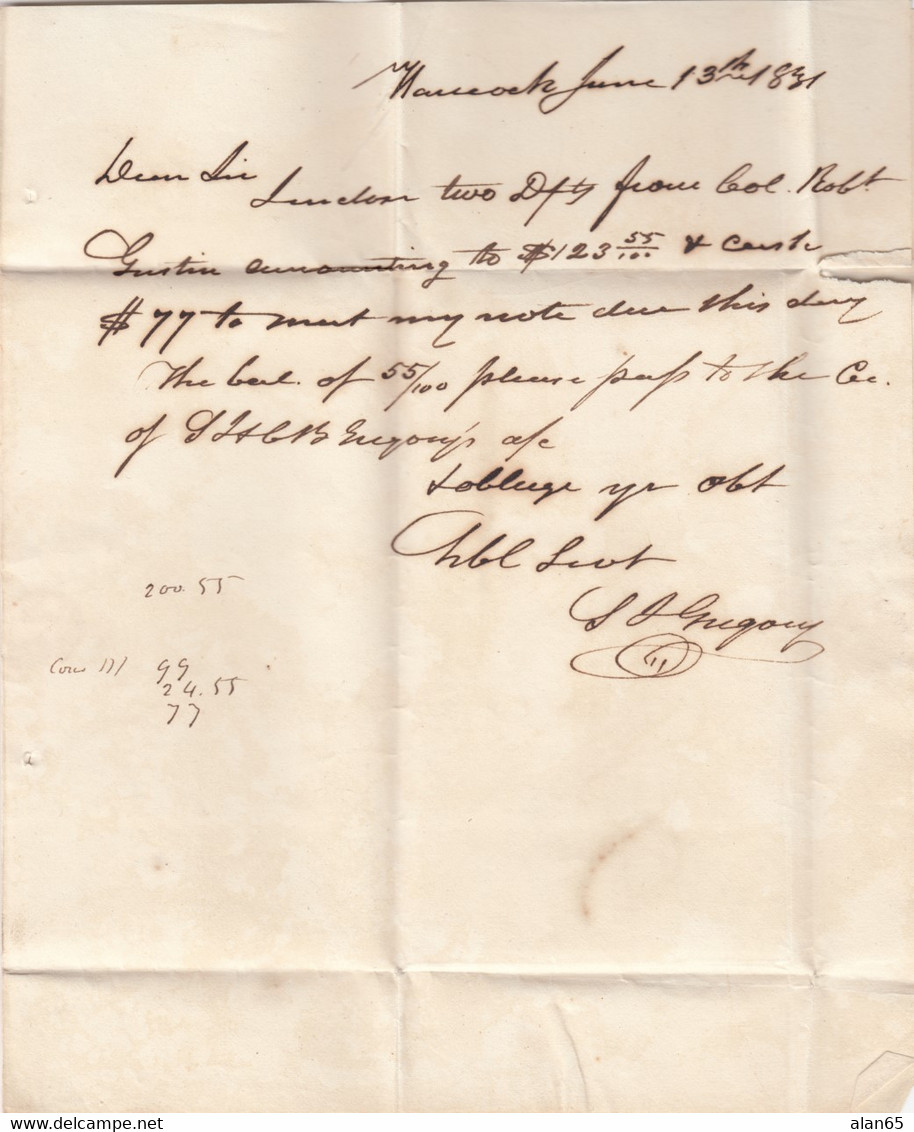 Hancock June 13th 1831
Dear Sir
I enclose two Dfts from Col. Robt
Gustin amounting to $123 55/100 & cash
$77 to meet my note due this day
The bal. of 55/100 please pass to the Cr.
of S & C B Gregory's a/c
& oblige yr obt
Hbl Servt
S Gregory
200.55
99
24.55
77
alan65